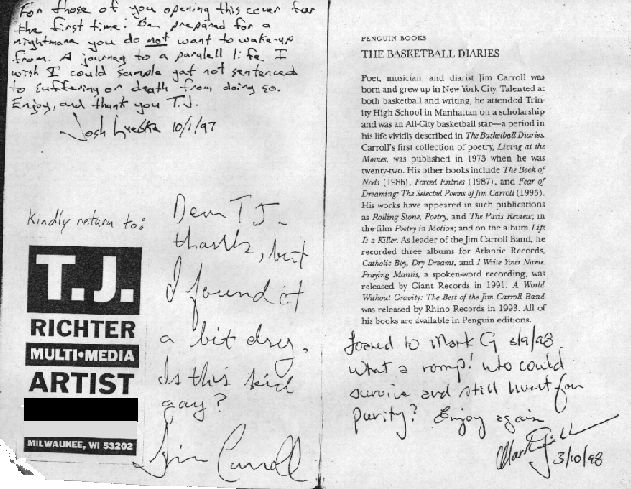 For those of you opening this cover for
the first time: Be prepared for a
nightmare you do not want to wake-up
from. A journey to a paralell life. I
wish I could sample yet not sentenced
to suffering or death from doing so.
Enjoy, and thank you T.J.
Josh 10/1/97
Kindly return to:
T.J.
RICHTER
MULTI•MEDIA
ARTIST
MILWAUKEE, WI 53202
Dear T.J.-
thanks, but
I found it
a bit dry,
Is this kid
gay?
Jim Carroll
PENGUIN BOOKS
THE BASKETBALL DIARIES
Poet, musician, and diarist Jim Carroll was
born and grew up in New York City. Talented at
both basketball and writing, he attended Trin-
ity High School in Manhattan on a scholarship
and was an All-City basketball star—a period in
his life vividly described in The Basketball Diaries.
Carroll's first collection of poetry, Living at the
Movies, was published in 1973 when he was
twenty-two. His other books include The Book of
Nods (1986), Forced Entries (1987), and Fear of
Dreaming: The Selected Poems of Jim Carroll (1993).
His works have appeared in such publications
as Rolling Stone, Poetry, and The Paris Review; in
the film Poetry in Motion; and on the album Life
Is a Killer. As leader of the Jim Carroll Band, he
recorded three albums for Atlantic Records,
Catholic Boy, Dry Dreams, and I Write Your Name.
Praying Mantis, a spoken-word recording, was
released by Giant Records in 1991. A World
Without Gravity: The Best of the Jim Carroll Band
was released by Rhino Records in 1993. All of
his books are available in Penguin editions.
loaned to Mark G 3/9/98
what a romp! who could
survive and still hunt for
purity? Enjoy again
Mark
3/10/98